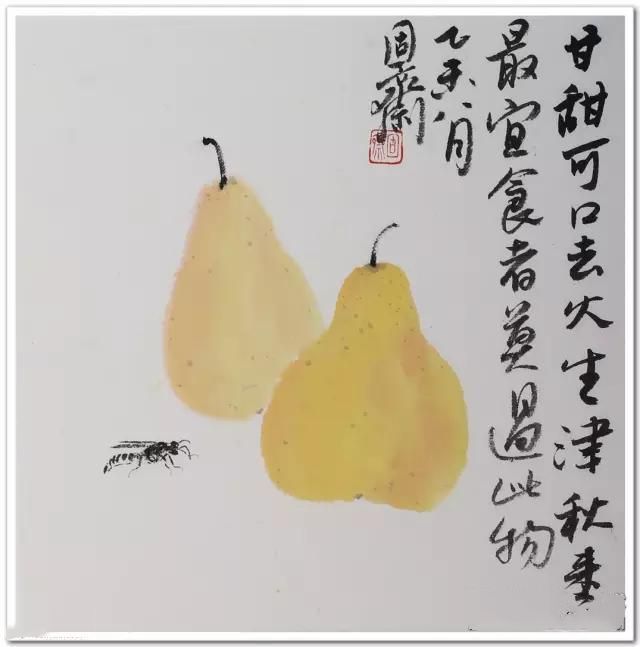 甘甜可口去火生津秋季
最宜食者莫過此物
乙未八月
固齋